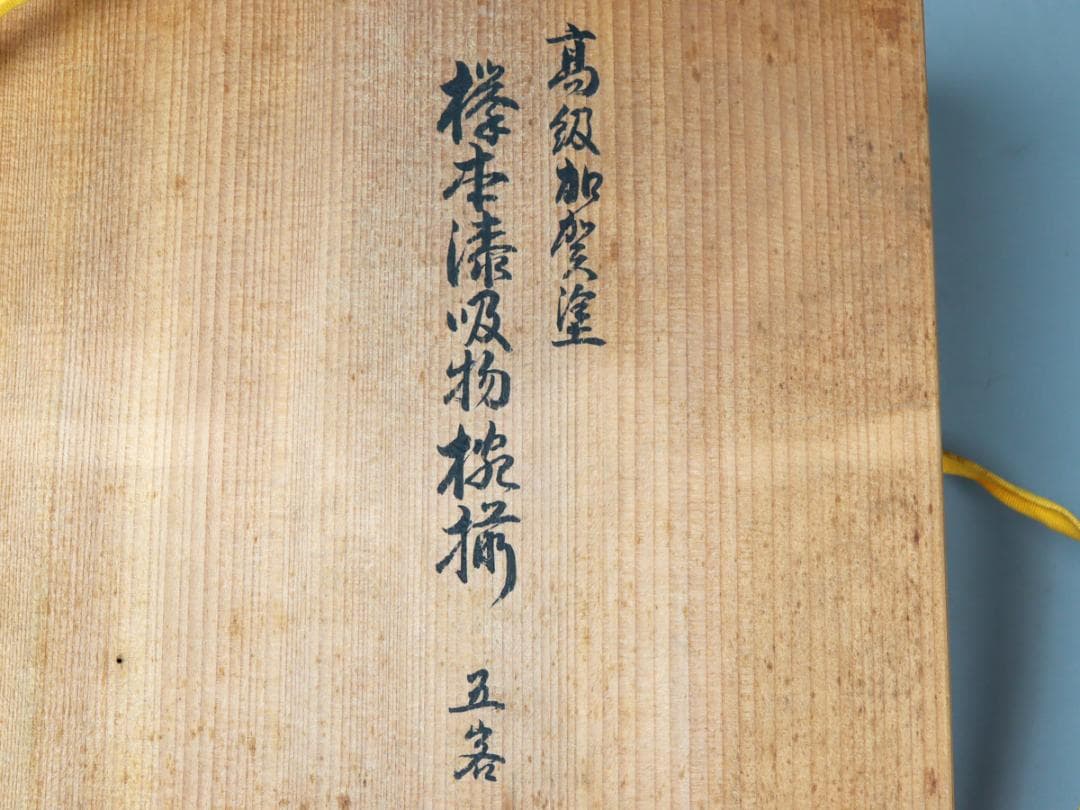 高級加賀塗
欅本漆吸物椀揃 五客